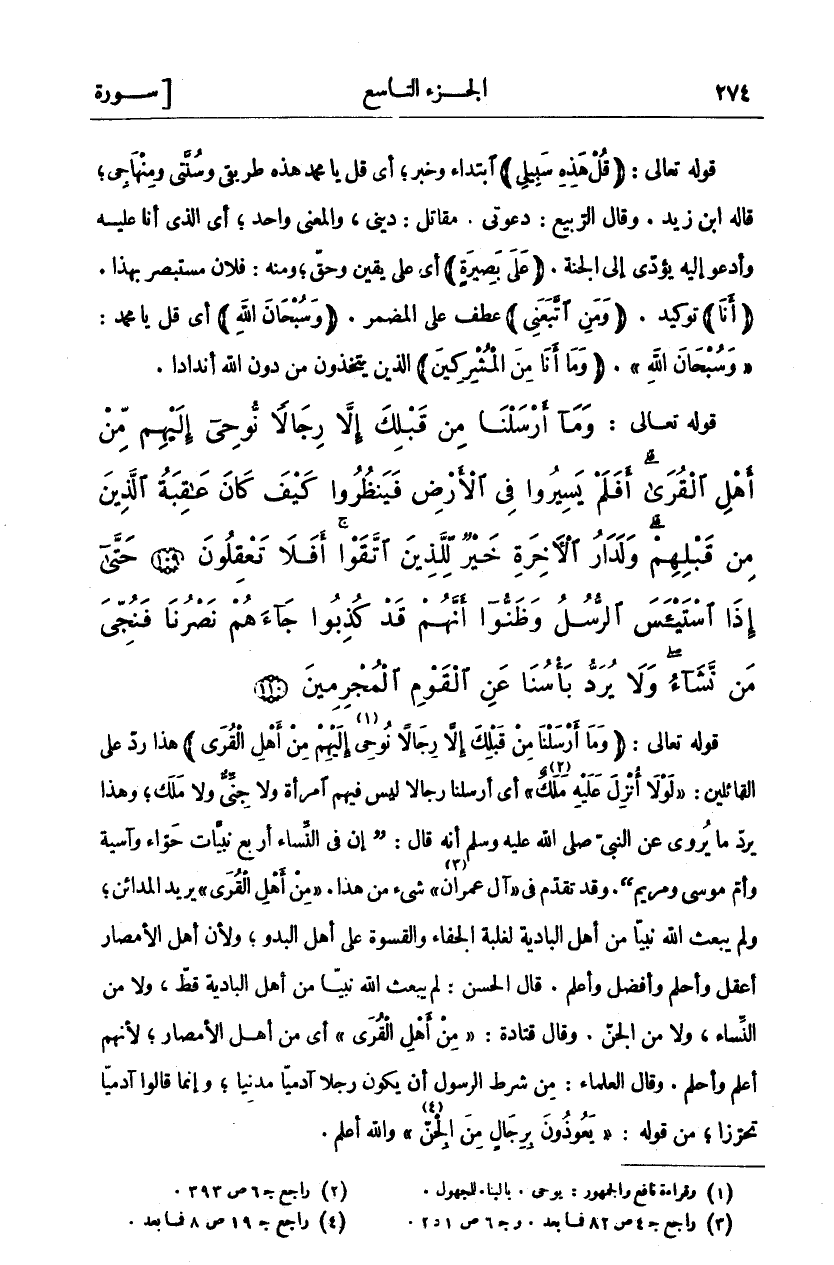 ٢٧٤ الجـزء التـاسع [ سـورة
قوله تعالى : ﴿ قُلْ هَذِهِ سَبِيلِى ﴾ ٱبتداء وخبر ؛ أى قل يا محمد هذه طريقى وسُنَّتى ومِنْهاجى ؛
قاله ابن زيد . وقال الرّبيع : دعوتى . مقاتل : دينى ، والمعنى واحد ؛ أى الذى أنا عليـه
وأدعو إليه يؤدّى إلى الجنة . ﴿ عَلَى بَصِيرَةٍ ﴾ أى على يقين وحقّ ؛ ومنه : فلان مستبصر بهذا .
﴿ أَنَا ﴾ توكيد . ﴿ وَمَنِ ٱتَّبَعَنِى ﴾ عطف على المضمر . ﴿ وَسُبْحَانَ اللَّهِ ﴾ أى قل يا محمد :
« وَسُبْحَانَ اللَّهِ » . ﴿ وَمَا أَنَا مِنَ الْمُشْرِكِينَ ﴾ الذين يتخذون من دون الله أندادا .
قوله تعـالى : وَمَآ أَرْسَلْنَـا مِن قَبْـلِكَ إِلَّا رِجَالًا نُّوحِىٓ إِلَيْهِم مِّنْ
أَهْلِ ٱلْقُرَىٰٓ ۗ أَفَلَمْ يَسِيرُوا فِى ٱلْأَرْضِ فَيَنظُرُوا كَيْفَ كَانَ عَـٰقِبَةُ ٱلَّذِينَ
مِن قَبْلِهِمْ ۗ وَلَدَارُ ٱلْآخِرَةِ خَيْرٌ لِّلَّذِينَ ٱتَّقَوْا ۚ أَفَلَا تَعْقِلُونَ ١٠٩ حَتَّىٰٓ
إِذَا ٱسْتَيْـَٔسَ ٱلرُّسُلُ وَظَنُّوٓا أَنَّهُمْ قَدْ كُذِبُوا جَآءَهُمْ نَصْرُنَا فَنُجِّىَ
مَن نَّشَآءُ ۖ وَلَا يُرَدُّ بَأْسُنَا عَنِ ٱلْقَوْمِ ٱلْمُجْرِمِينَ ١١٠
قوله تعالى : ﴿ وَمَا أَرْسَلْنَا مِنْ قَبْلِكَ إِلَّا رِجَالًا نُوحِى (١) إِلَيْهِمْ مِنْ أَهْلِ الْقُرَى ﴾ هذا ردّ على
القائلين : « لَوْلَا أُنْزِلَ عَلَيْهِ مَلَكٌ (٢) » أى أرسلنا رجالا ليس فيهم ٱمرأة ولا جِنِّىٌّ ولا ملَك ؛ وهذا
يردّ ما يُروى عن النبىّ صلى الله عليه وسلم أنه قال : " إن فى النِّساء أربع نبيَّات حَوّاء وآسية
وأمّ موسى ومريم " . وقد تقدّم فى « آل عمران (٣) » شىء من هذا . « مِنْ أَهْلِ الْقُرَى » يريد المدائن ؛
ولم يبعث الله نبيّا من أهل البادية لغلبة الجفاء والقسوة على أهل البدو ؛ ولأن أهل الأمصار
أعقل وأحلم وأفضل وأعلم . قال الحسن : لم يبعث الله نبيّـا من أهل البادية قطّ ، ولا من
النِّساء ، ولا من الجنّ . وقال قتادة : « مِنْ أَهْلِ الْقُرَى » أى من أهـل الأمصار ؛ لأنهم
أعلم وأحلم . وقال العلماء : مِن شرط الرسول أن يكون رجلا آدميّا مدنيا ؛ و إنما قالوا آدميّا
تحرّزا ؛ من قوله : « يَعُوذُونَ بِرِجَالٍ مِنَ الْجِنِّ (٤) » والله أعلم .
(١) وقراءة نافع والجمهور : يوحى . بالياء للمجهول . (٢) راجع جـ ٦ ص ٣٩٣ .
(٣) راجع جـ ٤ ص ٨٢ فـما بعد . و جـ ٦ ص ٢٥١ (٤) راجع جـ ١٩ ص ٨ فـما بعد .